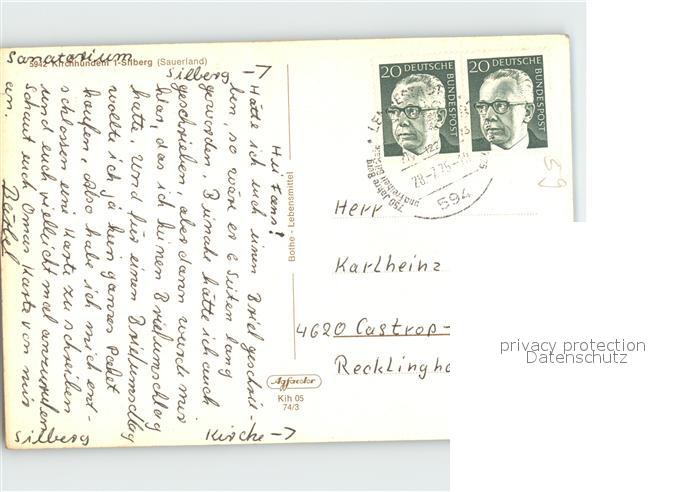 Sanatorium
5942 Kirchhundem 1-Silberg (Sauerland)
Silberg →
Hi Fans!
Hätte ich euch einen Brief geschrie-
ben, so wäre er 6 Seiten lang
geworden. Beinahe hätte ich euch
geschrieben, aber dann wurde mir
klar, das ich keinen Briefumschlag
hatte. Und für einen Briefumschlag
wollte ich ja kein ganzes Paket
kaufen. Also habe ich mich ent-
schlossen eine Karte zu schreiben
und euch vielleicht mal anzurufen
Schaut euch Omas Karte von mir
an.
Bärbel
Silberg
Kirche →
Bothe - Lebensmittel
Agfacolor
Kih 05
74/3
20 DEUTSCHE BUNDESPOST
20 DEUTSCHE BUNDESPOST
750 Jahre Burg
28.-7.75-
594
59
Herr
Karlheinz
4620 Castrop-
Recklingha
privacy protection
Datenschutz